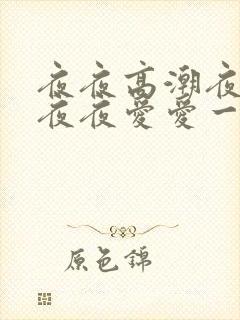 夜夜高潮夜
夜夜爱爱一
原色锦